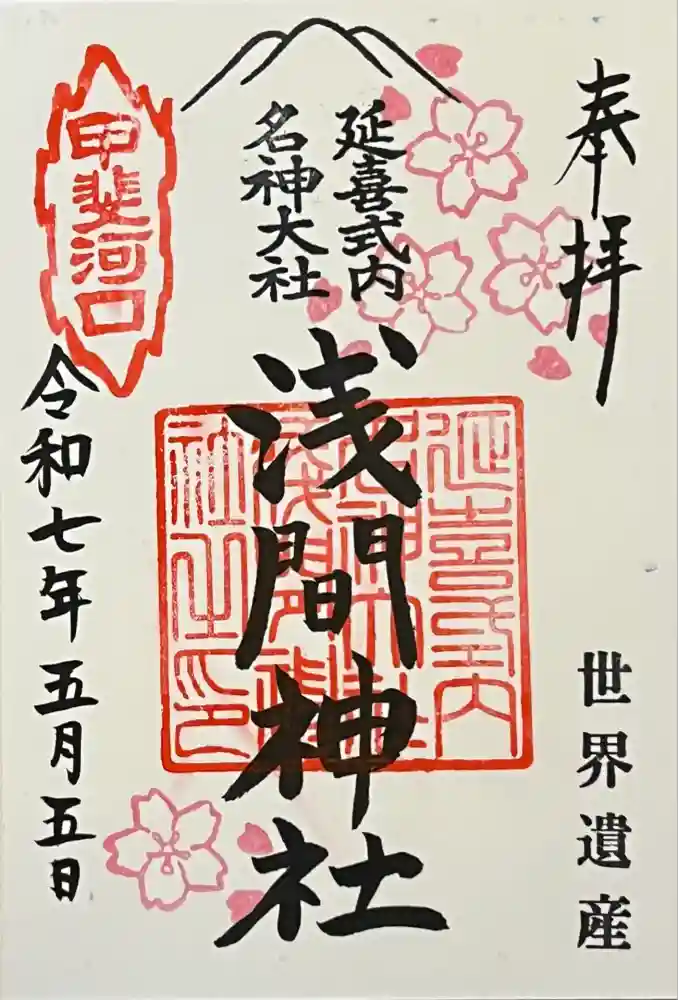 奉拝
世界遺産
延喜式内
名神大社
浅間神社
甲斐河口
令和七年五月五日
延喜式内
名神大社
浅間神
社之印